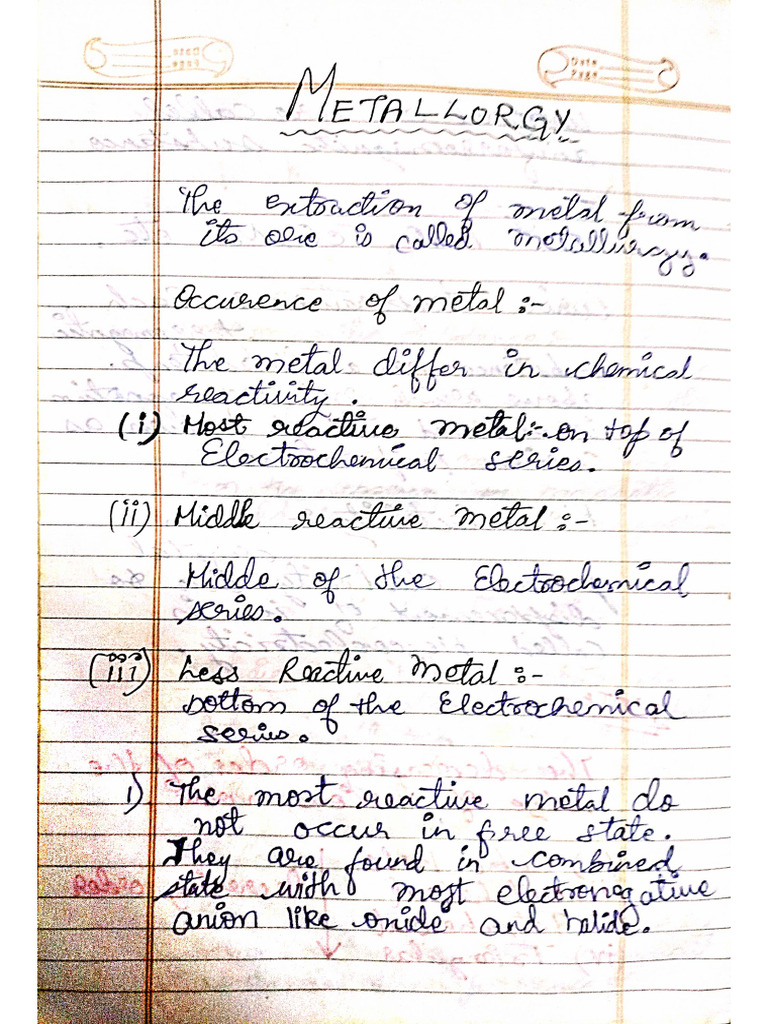 Date
Page
METALLORGY
The extraction of metal from
its ore is called metallurgy.
Occurence of metal :-
The metal differ in chemical
reactivity.
(i) Most reactive metal:- on top of
Electrochemical series.
(ii) Middle reactive metal :-
Midde of the Electrochemical
series.
(iii) Less Reactive Metal :-
bottom of the Electrochemical
series.
1) The most reactive metal do
not occur in free state.
They are found in combined
state with most electronegative
anion like oxide and halide.